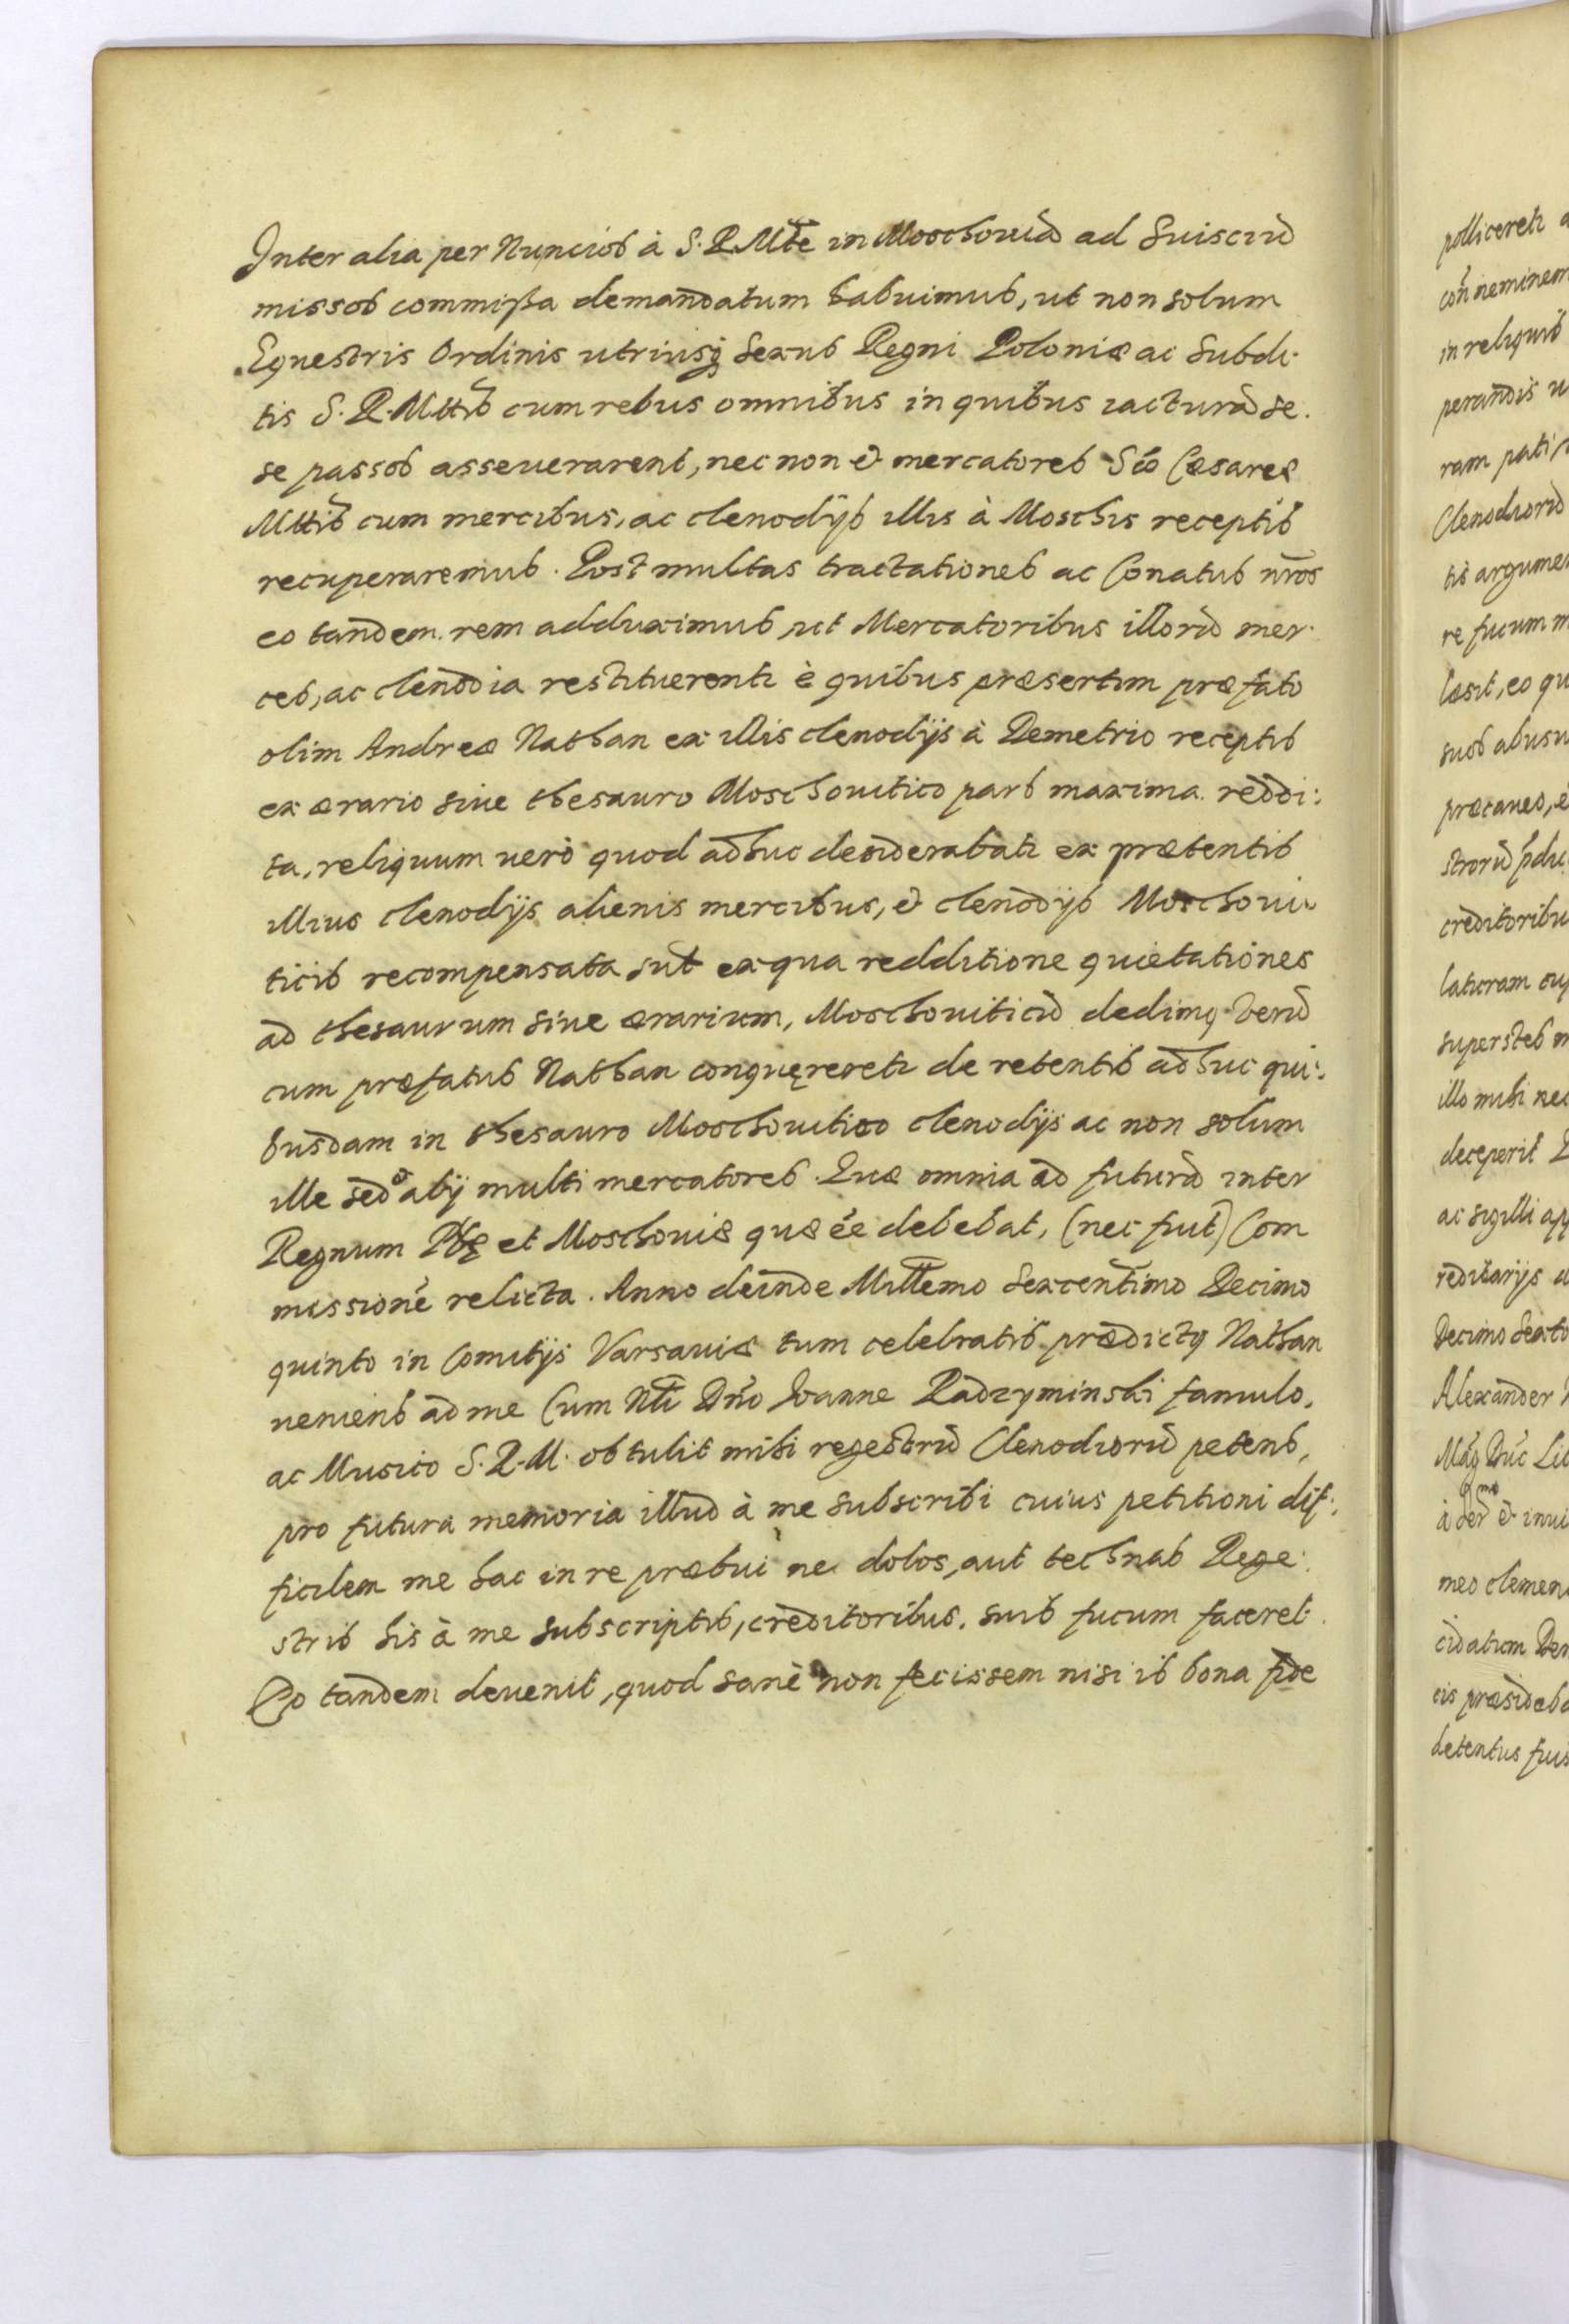 Inter alia per Nuncios à S. R. Mtte in Moschouiã ad Suisciũ
missos commissa demandatum habuimus, ut non solum
Equestris Ordinis utriusq sexus Regni Poloniæ ac Subdi-
tis S. R. Mttis cum rebus omnibus in quibus iacturã se.
se passos asseuerarent, nec non & mercatores Scæ Cæsareæ
Mttis cum mercibus, ac clenodÿs illis à Moschis receptis
recuperaremus. Post multas tractationes ac Conatus nr̃os
eo tandem rem adduximus, ut Mercatoribus illorũ mer-
ces, ac clenodia restituerentr è quibus præsertim præfato
olim Andreæ Nathan ex illis clenodijs à Demetrio receptis
ex ærario siue thesauro Moschouitico pars maxima reddi:
ta, reliquum uerò quod adhuc desiderabatr ex prætentis
illius clenodijs alienis mercibus, & clenodÿs Moschoui-
ticis recompensata sut̃ ex qua redditione quietationes
ad thesaurum siue ærarium, Moschouiticũ dedimq Verũ
cum præfatus Nathan conquęreretr de retentis adhuc qui:
busdam in thesauro Moschouitico clenodijs ac non solum
ille sed & alÿ multi mercatores. Quæ omnia ad futurã inter
Regnum Plæ et Moschouiæ quæ ẽe debebat, (nec fuit) Com
missionẽ relicta. Anno deinde Millemo Sexcentimo Decimo
quinto in Comitijs Varsauiæ tum celebratis prædictq Nathan
ueniens ad me Cum Nli Dño Ioanne Radzyminski famulo,
ac Musico S. R. M. obtulit mihi regestrũ Clenodiorũ petens,
pro futura memoria illud à me subscribi cuius petitioni dif:
ficilem me hac in re præbui ne dolos, aut technas Rege:
stris his à me subscriptis, creditoribus. suis fucum faceret.
Eo tandem deuenit, quod sanè non fecissem nisi is bona fide
pollicereti
neminem
in reliquis
perandis
ram pati
Clenodiorũ
tis argumen
re fucum m
læsit, eo qu
suos abusu
præcaueo, &
strorũ
creditoribu
laturam
superstes
illo mihi nec
deceperit
ac sigilli app
reditarijs
Decimo Sexto
Alexander
Mag Duc Lit
à & inui
meo clemen
cidatum Dem
cis præsideba
detentus fuis